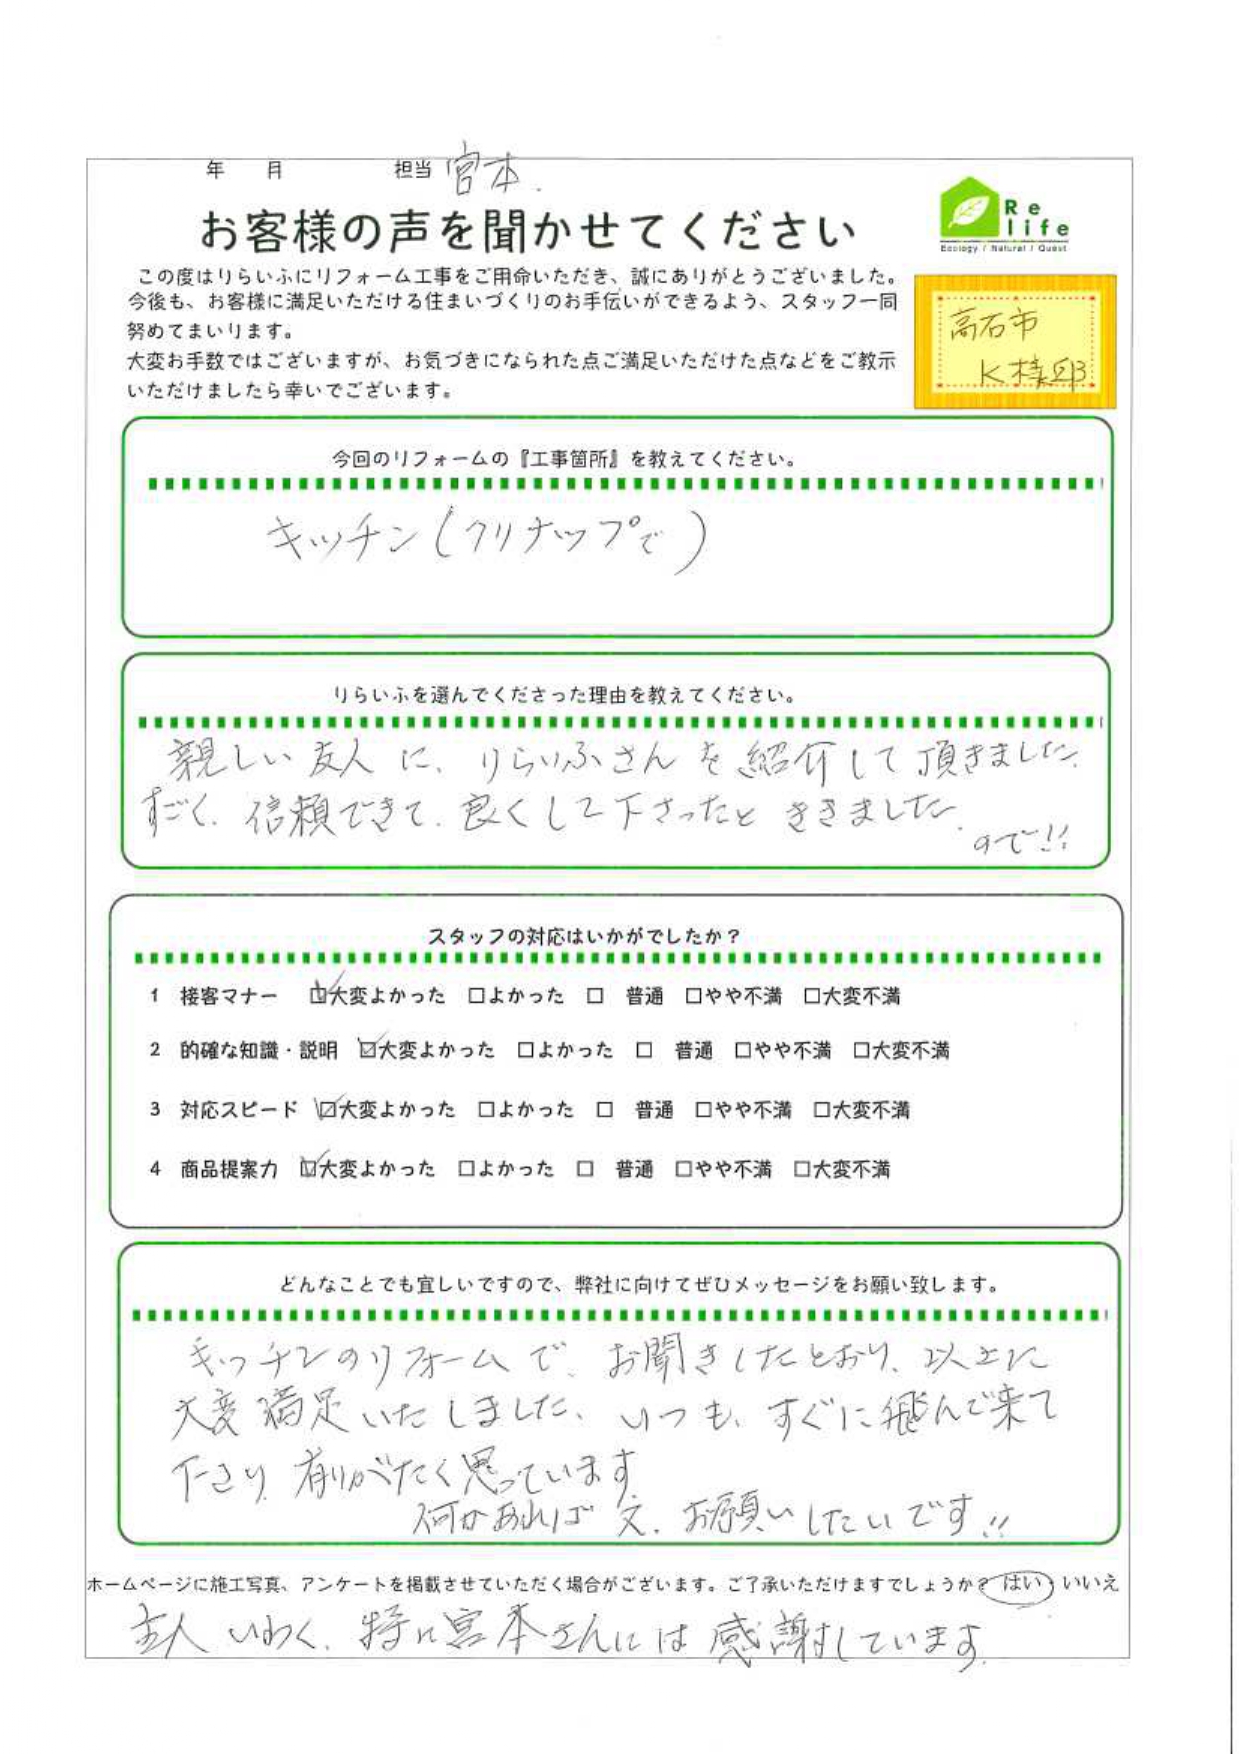 年 月 担当 宮本.
お客様の声を聞かせてください
Re
life
Ecology / Natural / Quest
この度はりらいふにリフォーム工事をご用命いただき、誠にありがとうございました。
今後も、お客様に満足いただける住まいづくりのお手伝いができるよう、スタッフ一同
努めてまいります。
大変お手数ではございますが、お気づきになられた点ご満足いただけた点などをご教示
いただけましたら幸いでございます。
高石市
K様邸
今回のリフォームの『工事箇所』を教えてください。
キッチン(クリナップで)
りらいふを選んでくださった理由を教えてください。
親しい友人に、りらいふさんを紹介して頂きました、
すごく、信頼できて、良くして下さったとききました、
ので!!
スタッフの対応はいかがでしたか?
1 接客マナー ☑大変よかった □よかった □ 普通 □やや不満 □大変不満
2 的確な知識・説明 ☑大変よかった □よかった □ 普通 □やや不満 □大変不満
3 対応スピード ☑大変よかった □よかった □ 普通 □やや不満 □大変不満
4 商品提案力 ☑大変よかった □よかった □ 普通 □やや不満 □大変不満
どんなことでも宜しいですので、弊社に向けてぜひメッセージをお願い致します。
キッチンのリフォームで、お聞きしたとおり、以上に
大変満足いたしました、いつも、すぐに飛んで来て
下さり、有りがたく思っています
何かあれば 又、お願いしたいです!!
ホームページに施工写真、アンケートを掲載させていただく場合がございます。ご了承いただけますでしょうか? はい いいえ
主人いわく、特に宮本さんには感謝しています。